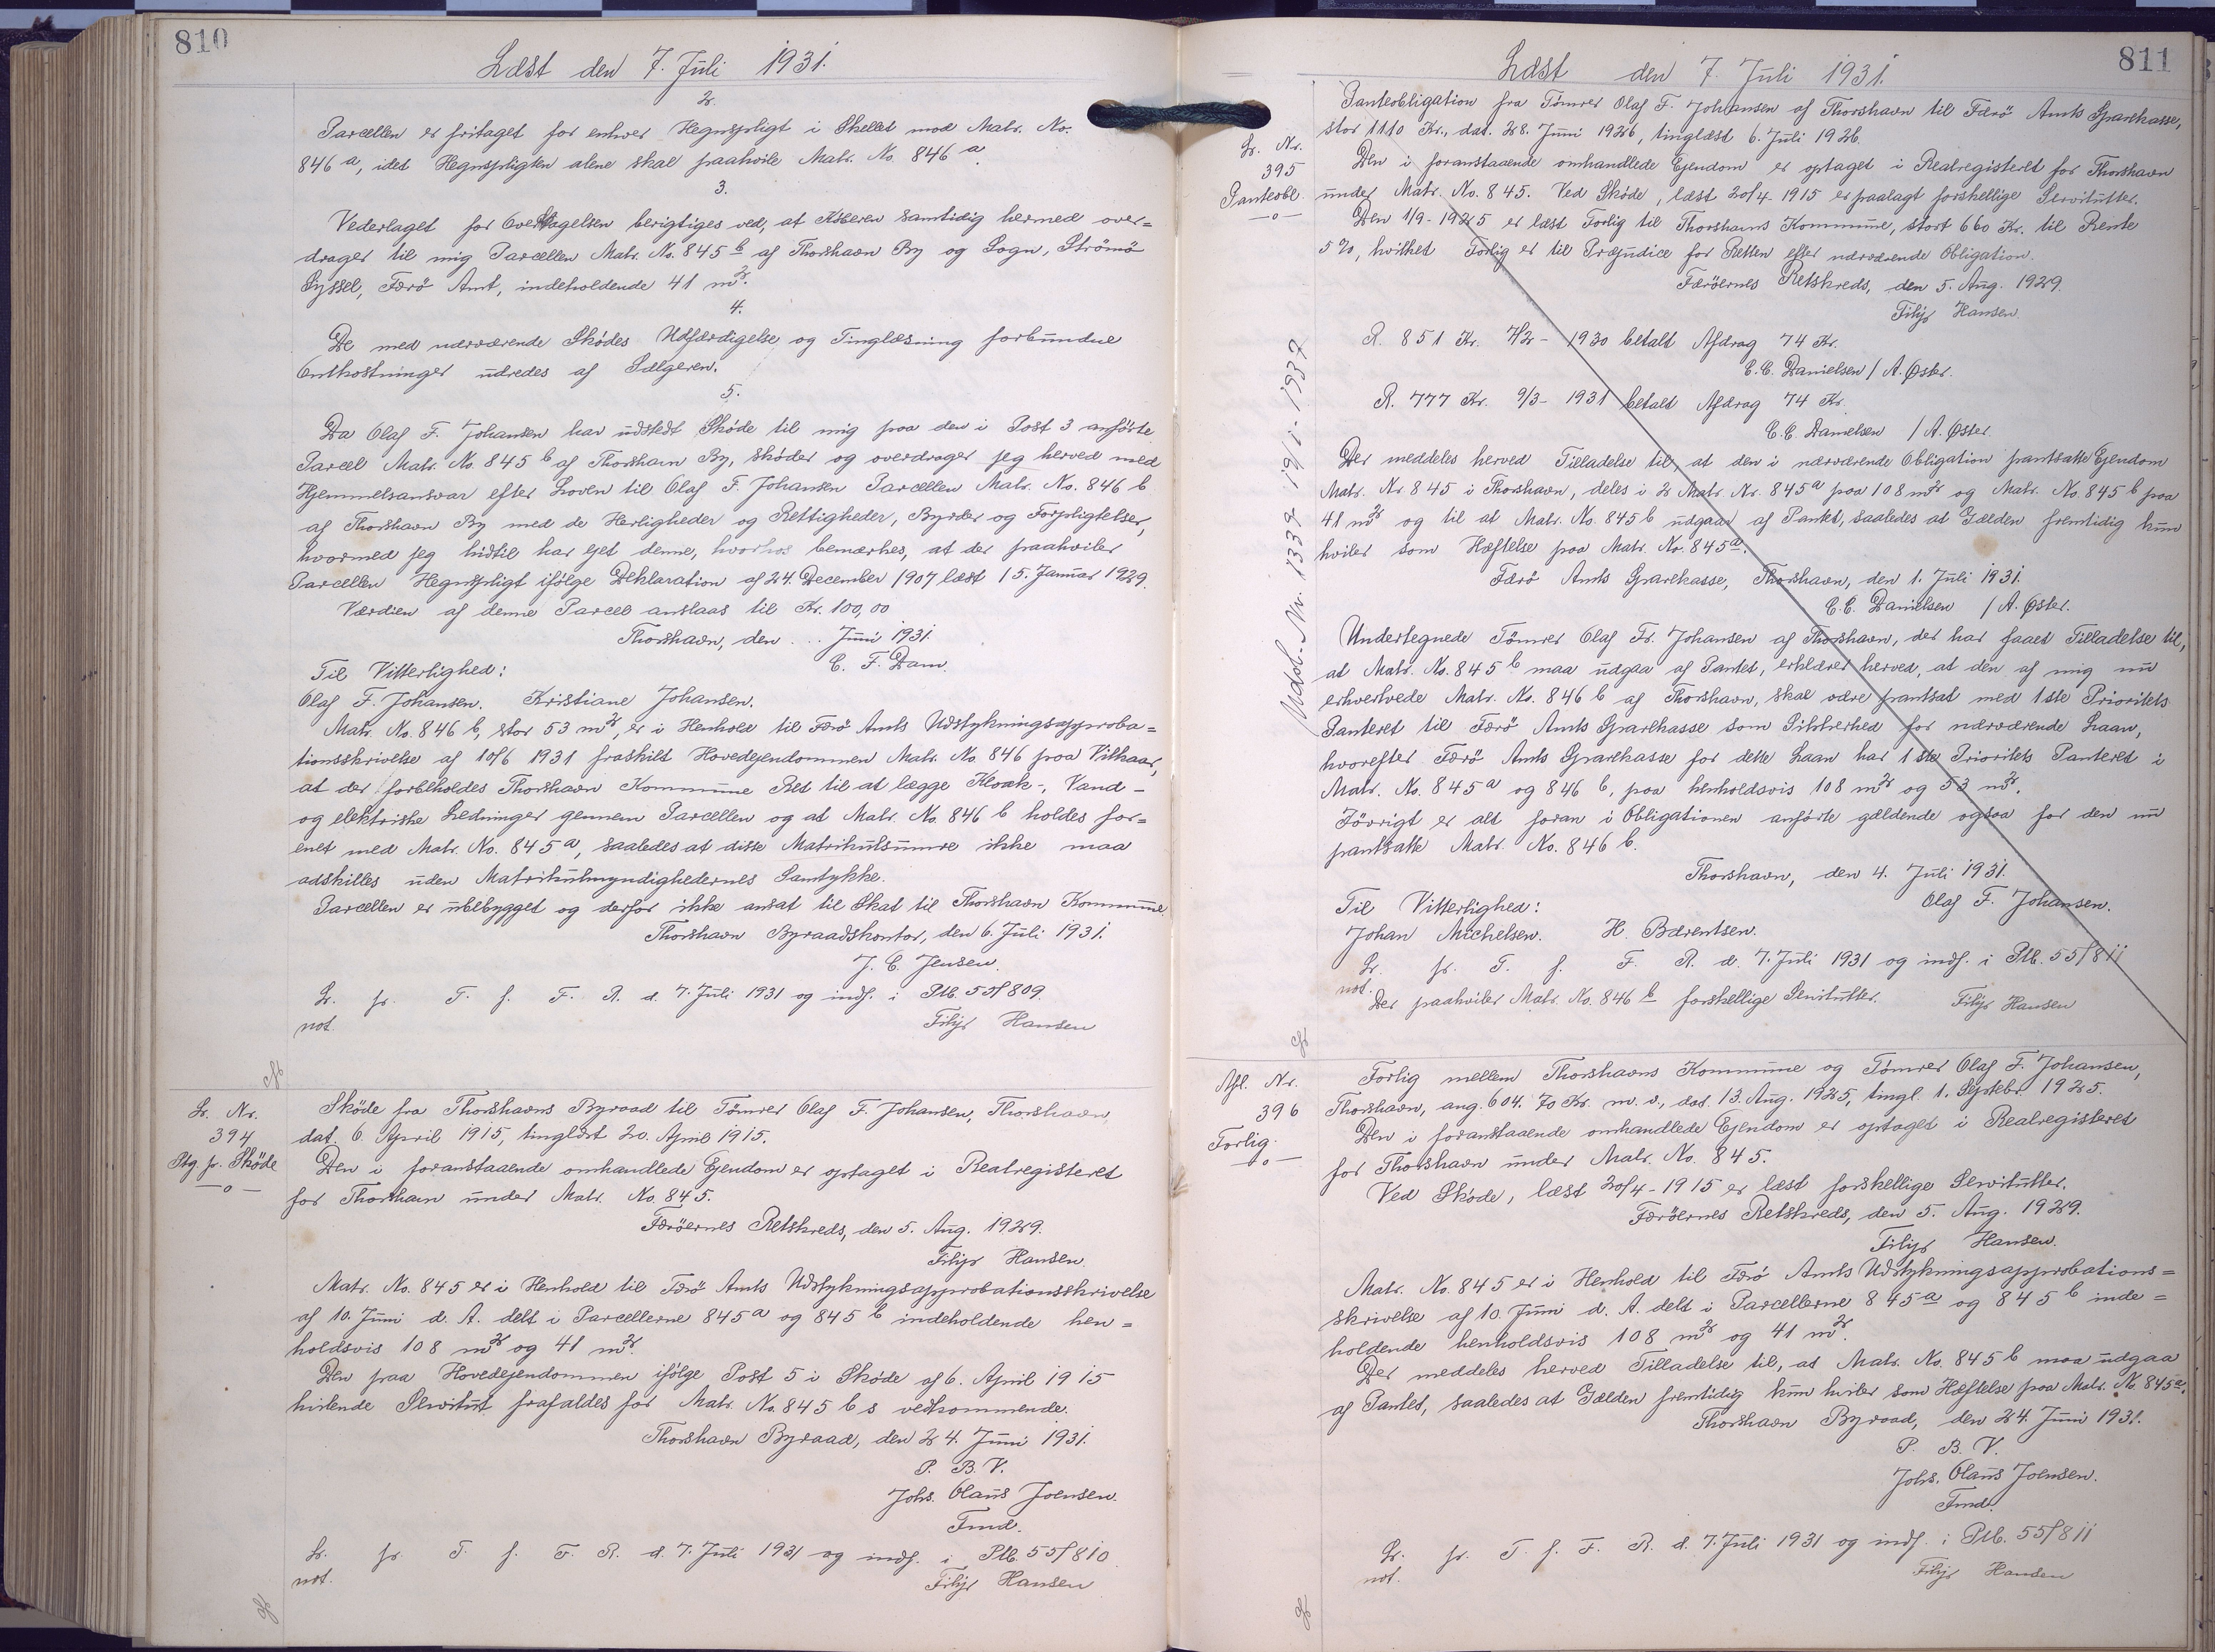 810
Læst den 7. Juli 1931.
2.
Parcellen er fritaget for enhver Hegnspligt i Skellet mod Matr. No.
846 a, idet Hegnspligten alene skal paahvile Matr. No. 846 a.
3.
Vederlaget for Overdragelsen berigtiges ved, at Køberen samtidig hermed over=
drager til mig Parcellen Matr. No. 845 b af Thorshavn By og Sogn, Strömö
Syssel, Færö Amt, indeholdende 41 m2.
4.
De med nærværende Skødes Udfærdigelse og Tinglæsning forbundne
Omkostninger udredes af Sælgeren.
5.
Da Olaf F. Johansen har udstedt Skøde til mig paa den i Post 3 anførte
Parcel Matr. No. 845 b af Thorshavn By, skøder og overdrager jeg herved med
Hjemmelsansvar efter Loven til Olaf F. Johansen Parcellen Matr. No. 846 b
af Thorshavn By med de Herligheder og Rettigheder, Byrder og Forpligtelser,
hvormed jeg hidtil har ejet denne, hvorhos bemærkes, at der paahviler
Parcellen Hegnspligt ifølge Deklaration af 24. December 1907 læst 15. Januar 1929.
Værdien af denne Parcel anslaas til Kr. 100,00
Thorshavn, den ... Juni 1931.
Til Vitterlighed: C. F. Dam.
Olaf F. Johansen. Kristiane Johansen.
Matr. No. 846 b, stor 53 m2, er i Henhold til Færö Amts Udstykningsapproba=
tionsskrivelse af 10/6 1931 fraskilt Hovedejendommen Matr. No. 846 paa Vilkaar,
at der forbeholdes Thorshavn Kommune Ret til at lægge Kloak-, Vand-
og elektriske Ledninger gennem Parcellen og at Matr. No. 846 b holdes for=
enet med Matr. No. 845 a, saaledes at disse Matrikulsnumre ikke maa
adskilles uden Matrikulmyndighedernes Samtykke.
Parcellen er ubebygget og derfor ikke ansat til Skat til Thorshavn Kommune.
Thorshavn Byraadskontor, den 6. Juli 1931.
J. C. Jensen.
Lr. p. T. f. F. R. d. 7. Juli 1931 og indf. i Ptb. 55/809.
not. Filip Hansen
Lr. Nr.
394
Ptg. p. Skøde
—o—
Skøde fra Thorshavns Byraad til Tömrer Olaf F. Johansen, Thorshavn,
dat. 6. April 1915, tinglæst 20. April 1915.
Den i foranstaaende omhandlede Ejendom er optaget i Realregisteret
for Thorshavn under Matr. No. 845.
Færöernes Retskreds, den 5. Aug. 1929.
Filip Hansen.
Matr. No. 845 er i Henhold til Færö Amts Udstykningsapprobationsskrivelse
af 10. Juni d. A. delt i Parcellerne 845 a og 845 b indeholdende hen=
holdsvis 108 m2 og 41 m2.
Den paa Hovedejendommen ifølge Post 5 i Skøde af 6. April 1915
hvilende Servitut frafaldes for Matr. No. 845 b s vedkommende.
Thorshavn Byraad, den 24. Juni 1931.
P. B. V.
Johs. Olaus Joensen.
Fmd.
Lr. p. T. f. F. R. d. 7. Juli 1931 og indf. i Ptb. 55/810
not. Filip Hansen
811
Læst den 7. Juli 1931.
Lr. Nr.
395
Panteobl.
—o—
Panteobligation fra Tömrer Olaf F. Johansen af Thorshavn til Færö Amts Sparekasse,
stor 1110 Kr., dat. 28. Juni 1926, tinglæst 6. Juli 1926.
Den i foranstaaende omhandlede Ejendom er optaget i Realregisteret for Thorshavn
under Matr. No. 845. Ved Skøde, læst 20/4-1915 er paalagt forskellige Servitutter.
Den 1/9-1925 er læst Forlig til Thorshavns Kommune, stort 660 Kr. til Rente
5%, hvilket Forlig er til Præjudice for Retten efter nærværende Obligation.
Færöernes Retskreds, den 5. Aug. 1929.
Filip Hansen.
R. 851 Kr. 7/2-1930 betalt Afdrag 74 Kr.
C.C. Danielsen / A. Øster.
R. 777 Kr. 9/3-1931 betalt Afdrag 74 Kr.
C.C. Danielsen / A. Øster.
Der meddeles herved Tilladelse til, at den i nærværende Obligation pantsatte Ejendom
Matr. Nr. 845 i Thorshavn, deles i 2 Matr. Nr. 845 a paa 108 m2 og Matr. No. 845 b paa
41 m2 og til at Matr. No. 845 b udgaar af Pantet, saaledes at Gælden fremtidig kun
hviler som Hæftelse paa Matr. No. 845 a.
Færö Amts Sparekasse, Thorshavn, den 1. Juli 1931.
C.C. Danielsen / A. Øster.
Undertegnede Tömrer Olaf Fr. Johansen af Thorshavn, der har faaet Tilladelse til,
at Matr. No. 845 b maa udgaa af Pantet, erklærer herved, at den af mig nu
erhvervede Matr. No. 846 b af Thorshavn, skal være pantsat med 1ste Prioritets
Panteret til Færö Amts Sparekasse som Sikkerhed for nærværende Laan,
hvorefter Færö Amts Sparekasse for dette Laan har 1ste Prioritets Panteret i
Matr. No. 845 a og 846 b, paa henholdsvis 108 m2 og 53 m2.
Iövrigt er alt foran i Obligationen anførte gældende ogsaa for den nu
pantsatte Matr. No. 846 b.
Thorshavn, den 4. Juli 1931.
Til Vitterlighed: Olaf F. Johansen.
Johan Michelsen. H. Bærentsen.
Lr. p. T. f. F. R. d. 7. Juli 1931 og indf. i Ptb. 55/811
not.
Der paahviler Matr. No. 846 b forskellige Servitutter. Filip Hansen
Afl. Nr.
396
Forlig.
—o—
Forlig mellem Thorshavns Kommune og Tömrer Olaf F. Johansen,
Thorshavn, ang. 604. 70 Kr. m. v., dat. 13. Aug. 1925, tingl. 1. Septebr. 1925.
Den i foranstaaende omhandlede Ejendom er optaget i Realregisteret
for Thorshavn under Matr. No. 845.
Ved Skøde, læst 20/4-1915 er læst forskellige Servitutter.
Færöernes Retskreds, den 5. Aug. 1929.
Filip Hansen.
Matr. No. 845 er i Henhold til Færö Amts Udstykningsapprobations=
skrivelse af 10. Juni d. A. delt i Parcellerne 845 a og 845 b inde=
holdende henholdsvis 108 m2 og 41 m2.
Der meddeles herved Tilladelse til, at Matr. No. 845 b maa udgaa
af Pantet, saaledes at Gælden fremtidig kun hviler som Hæftelse paa Matr. No. 845 a.
Thorshavn Byraad, den 24. Juni 1931.
P. B. V.
Johs. Olaus Joensen.
Fmd.
Lr. p. T. f. F. R. d. 7. Juli 1931 og indf. i Ptb. 55/811
not. Filip Hansen